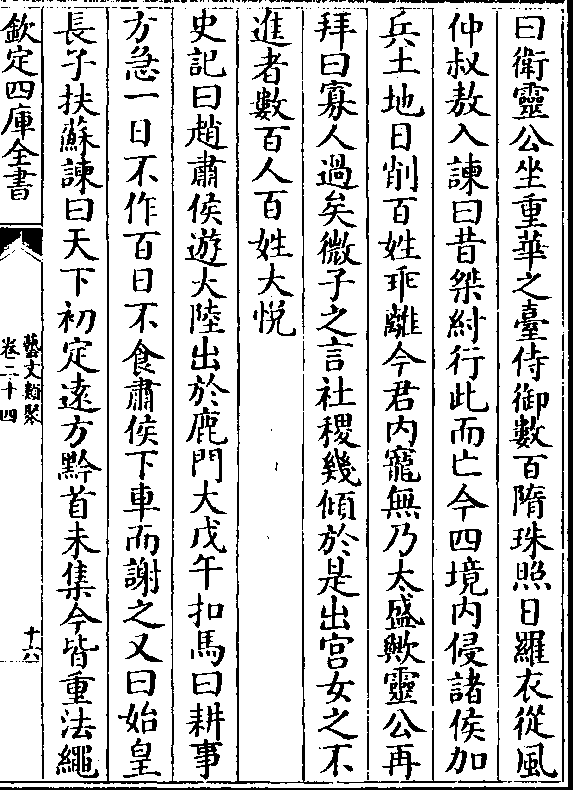 曰衛靈公坐重華之臺侍御數百隋珠照日羅衣從風
仲叔敖入諫曰昔桀紂行此而亡今四境内侵諸侯加
兵土地日削百姓乖離今君内寵無乃太盛歟靈公再
拜曰寡人過矣微子之言社稷幾傾於是出宫女之不
進者數百人百姓大悅
史記曰趙肅侯遊大陸出於鹿門大戊午扣馬曰耕事
方急一日不作百日不食肅侯下車而謝之又曰始皇
長子扶蘇諫曰天下初定遠方黔首未集今皆重法繩
欽定四庫全書
藝文類聚
卷二十四
十六